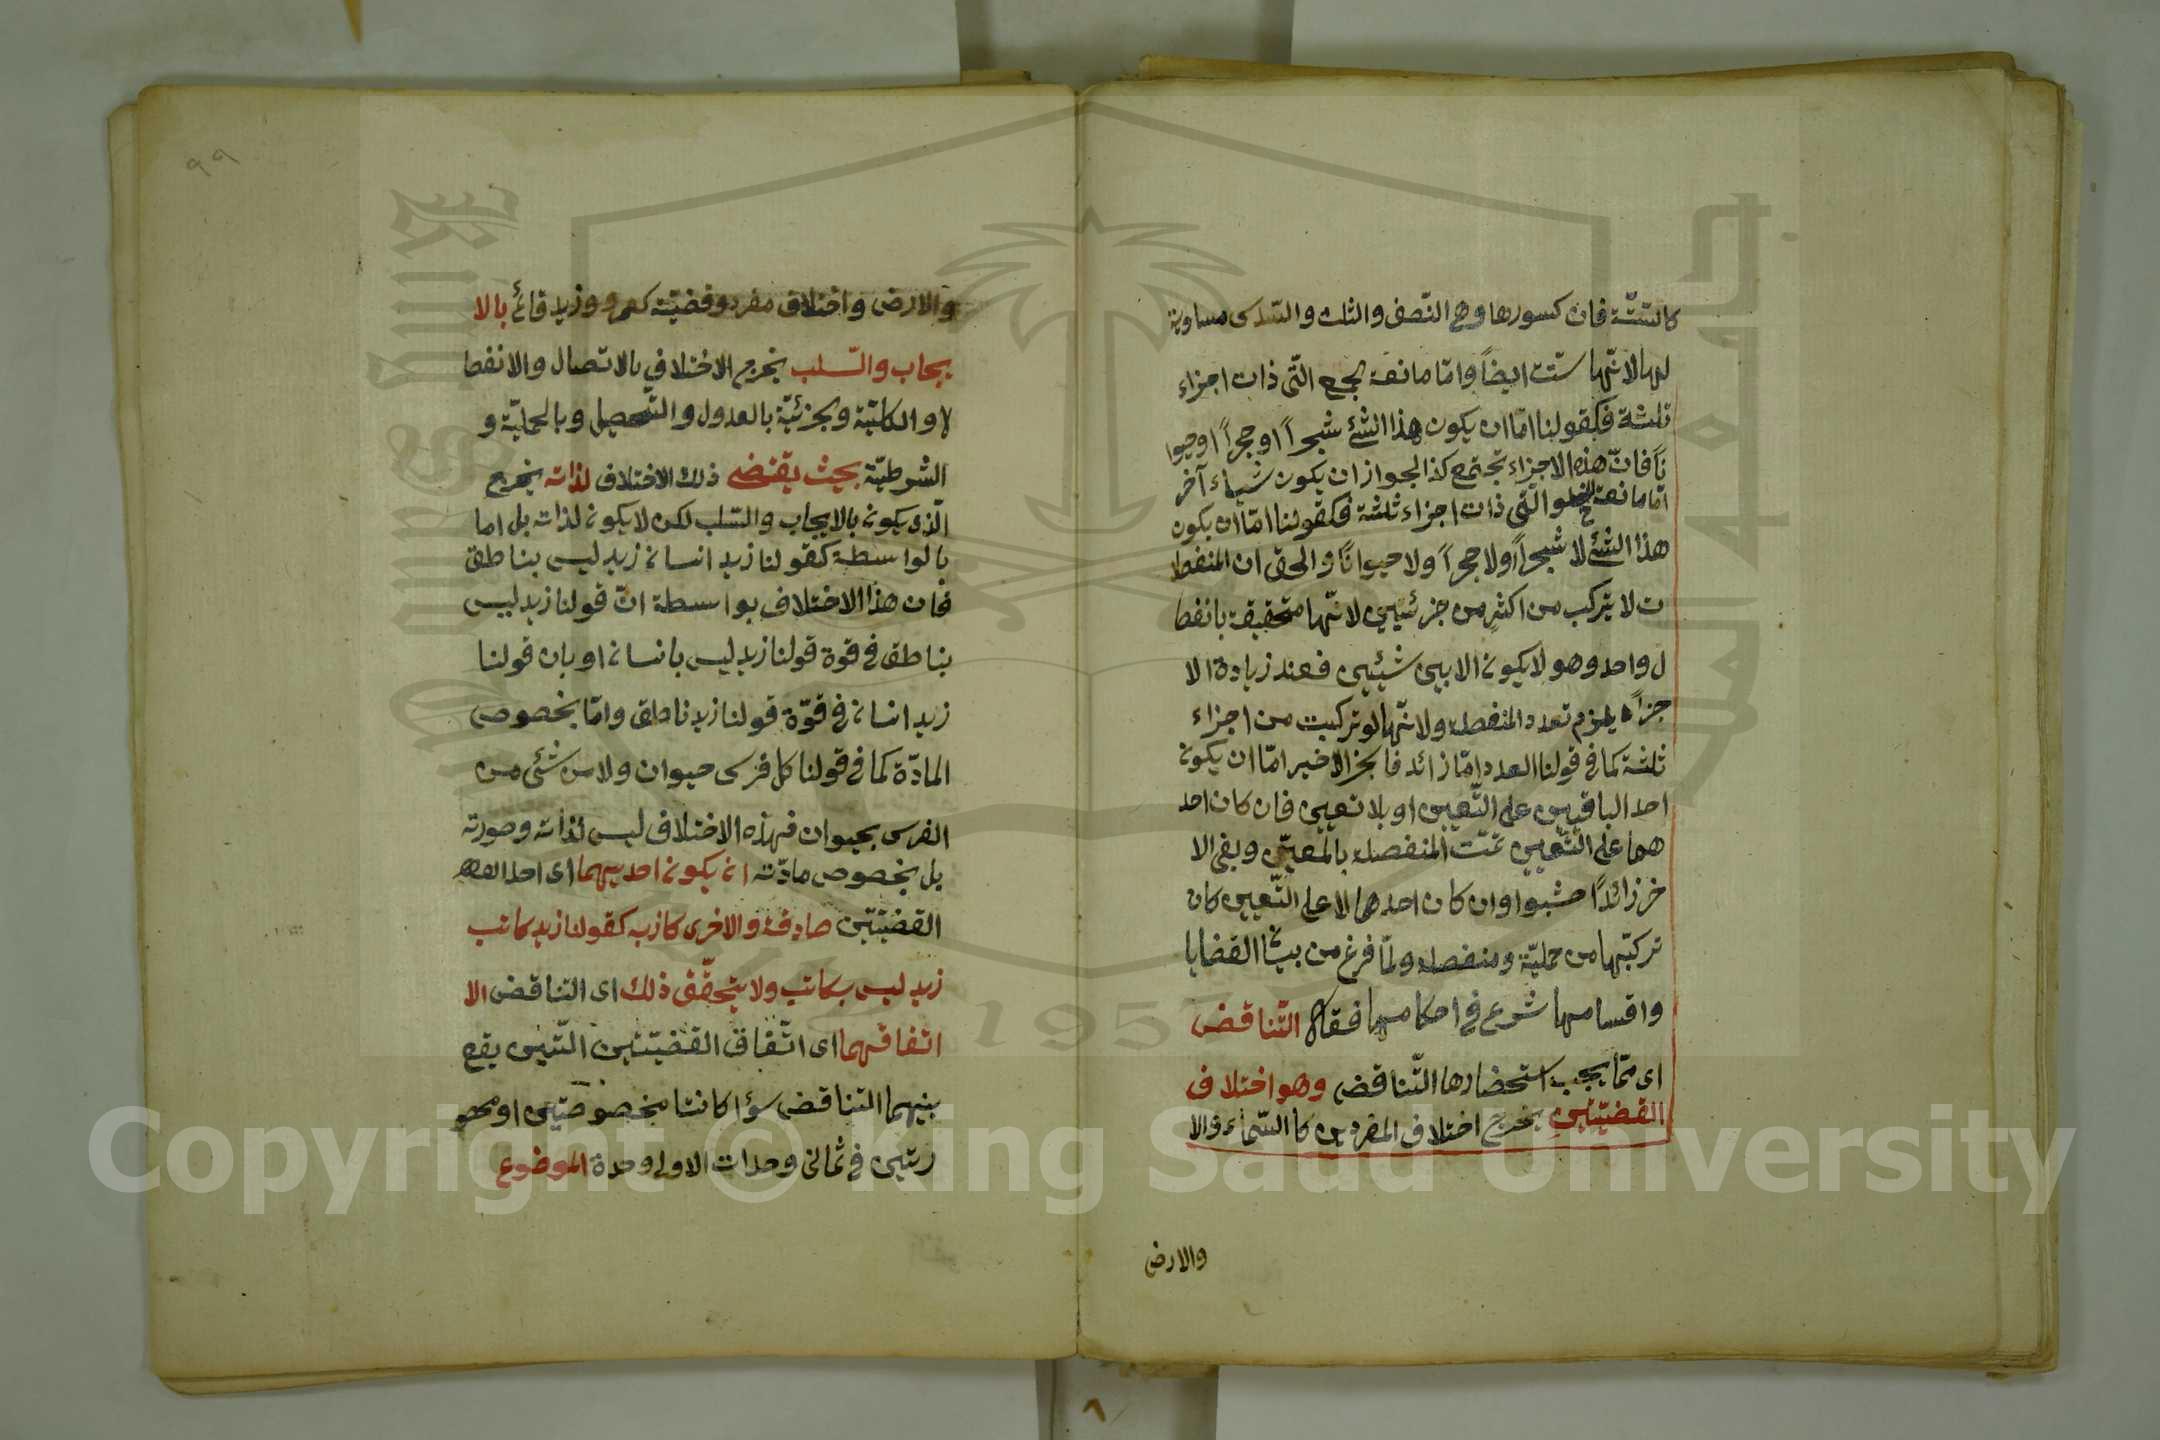 كالستّة فان كسورها وهى النّصف والثلث والسّدس مساوية
لها لانّها ستت ايضاً وامّا مانعة الجمع التّى ذات اجزاء
ثلثة فكقولنا امّا ان يكون هذا الشئ شجراً او حجراً او حيوا
ناً فانّ هذه الاجزاء تجتمع كذا لجواز ان يكون شياء آخر
امّا مانعة الخلو التّى ذات اجزاء ثلثة فكقولنا امّا ان يكون
هذا الشئ لا شجراً ولا حجراً ولا حيواناً والحق ان المنفصلا
ت لا يتركب من اكثر من جزئيين لانّها متحقيقة بانفصا
ل واحد وهو لا يكون الا بين شيئين فعند زيادة الا
جزاء يلزم تعدد المنفصلة ولانّها لو تركبت من اجزاء
ثلثة كما فى قولنا العدد امّا زائد فالجز الاخير امّا ان يكون
احد الباقيين على التّعيين او بلا تعيين فان كان احد
هما على التّعيين تمّت المنفصلة بالمعيّن وبقى الا
خر زائداً حشوا وان كان احدهما لا على التّعيين كان
تركبّها من حمليّة ومنفصلة ولمّا فرغ من بيان القضايا
واقسامها شرع فى احكامها فقال التّناقض
اى ممّا يجب استحضارها التّناقض وهو اختلاف
القضيّتين يخرج اختلاف المفردين كالسّماء والا
والارض
٩٩
والارض واختلاف مفرد وقضيّة كعمرو وزيد قائم بالا
يجاب والسّلب يخرج الاختلاف بالاتصال والانفصا
ل والكليّة وبجزئيّة بالعدول والتّحصيل وبالحمليّة و
الشرطيّة بحيث يقتضى ذلك الاختلاف لذاته يخرج
الّذى يكون بالايجاب والسّلب لكن لا يكون لذاته بل اما
بالواسطة كقولنا زيد انسان زيد ليس بناطق
فان هذا الاختلاف بواسطة انّ قولنا زيد ليس
بناطق فى قوة قولنا زيد ليس بانسان او بان قولنا
زيد انسان فى قوّة قولنا زيد ناطق وامّا بخصوص
المادّة كما فى قولنا كل فرس حيوان ولا من شئى من
الفرس بحيوان فهذه الاختلاف ليس لذاته وصورته
بل بخصوص مادّته ان يكون احديهما اى احد
القضيّتين صادقة والاخرى كاذبه كقولنا زيد كاتب
زيد ليس بكاتب ولا يتحقّق ذلك اى التناقض الا
اتفاقهما اى اتّفاق القضيّتين التّين يقع
بينهما التناقض سؤا كانتا مخصوصتين او محصو
رتين فى ثمانى وحدات الاولى وحدة الموضوع
٨
Copyright © King Saud University
1957